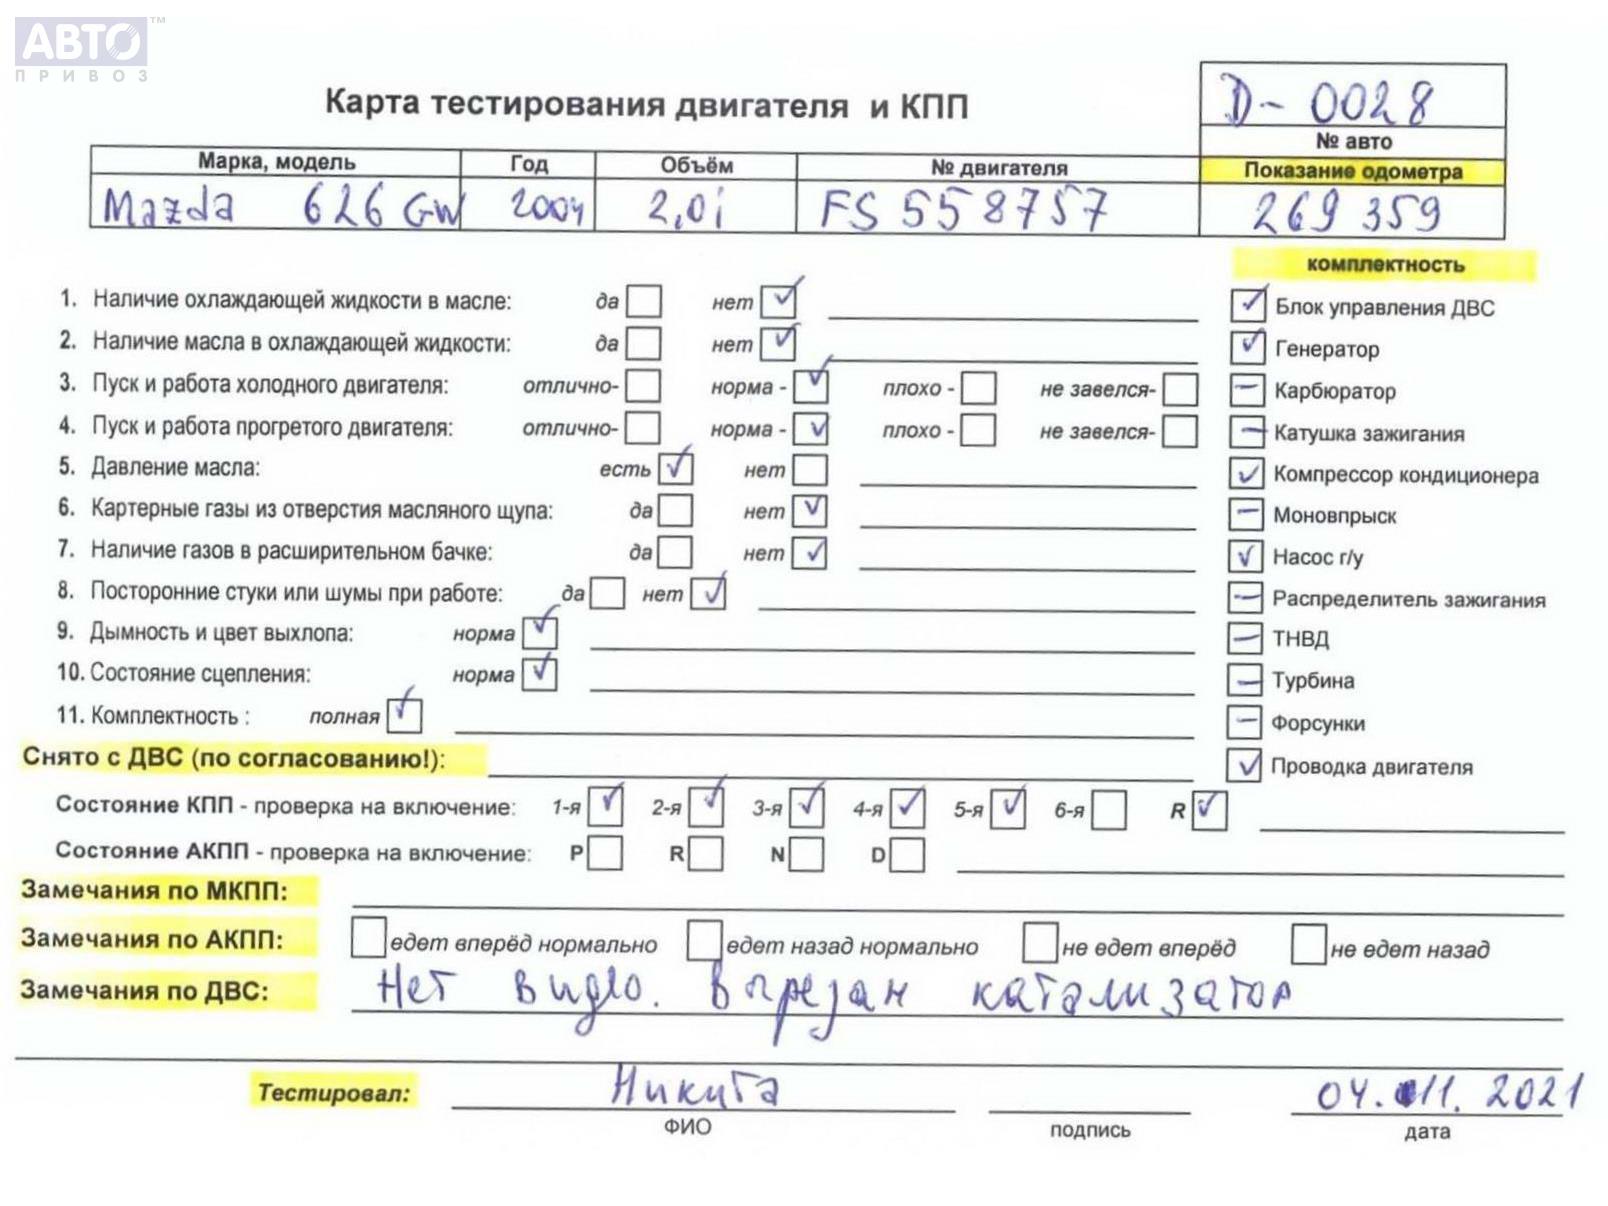 АВТО™
ПРИВОЗ
Карта тестирования двигателя и КПП
D-0028
№ авто
Марка, модель Год Объём № двигателя Показание одометра
Mazda 626 GW 2001 2,0i FS 558757 269 359
комплектность
1. Наличие охлаждающей жидкости в масле: да нет ✓ ✓ Блок управления ДВС
2. Наличие масла в охлаждающей жидкости: да нет ✓ ✓ Генератор
3. Пуск и работа холодного двигателя: отлично- норма - ✓ плохо - не завелся- – Карбюратор
4. Пуск и работа прогретого двигателя: отлично- норма - ✓ плохо - не завелся- – Катушка зажигания
5. Давление масла: есть ✓ нет ✓ Компрессор кондиционера
6. Картерные газы из отверстия масляного щупа: да нет ✓ – Моновпрыск
7. Наличие газов в расширительном бачке: да нет ✓ ✓ Насос г/у
8. Посторонние стуки или шумы при работе: да нет ✓ – Распределитель зажигания
9. Дымность и цвет выхлопа: норма ✓ – ТНВД
10. Состояние сцепления: норма ✓ – Турбина
11. Комплектность : полная ✓ – Форсунки
Снято с ДВС (по согласованию!): ✓ Проводка двигателя
Состояние КПП - проверка на включение: 1-я ✓ 2-я ✓ 3-я ✓ 4-я ✓ 5-я ✓ 6-я R ✓
Состояние АКПП - проверка на включение: P R N D
Замечания по МКПП:
Замечания по АКПП: едет вперёд нормально едет назад нормально не едет вперёд не едет назад
Замечания по ДВС: Нет видео. Вырезан катализатор
Тестировал: Никита 04.11.2021
ФИО подпись дата